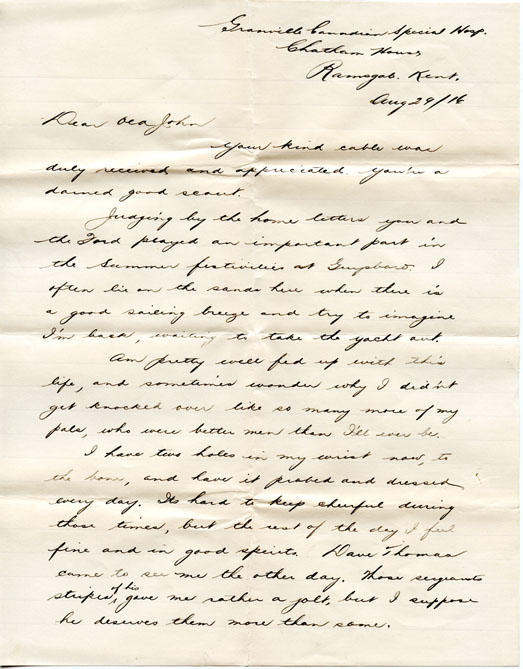 Granville Canadian Special Hosp.
Chatham House
Ramsgate. Kent.
Aug 29/16
Dear Old John
Your kind cable was
duly received and appreciated. You're a
darned good scout.
Judging by the home letters you and
the Ford played an important part in
the Summer festivities at Guysboro. I
often lie on the sands here when there is
a good sailing breeze and try to imagine
I'm back, waiting to take the yacht out.
Am pretty well fed up with this
life, and sometimes wonder why I didn't
get knocked over like so many more of my
pals, who were better men than I'll ever be.
I have two holes in my wrist now, to
the bone, and have it probed and dressed
every day. Its hard to keep cheerful during
those times, but the rest of the day I feel
fine and in good spirits. Dave Thomas
came to see me the other day. Those sergeants
stripes of his, gave me rather a jolt, but I suppose
he deserves them more than some.